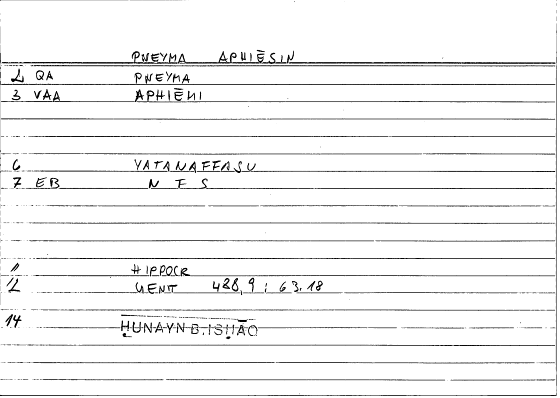 PNEYMA APHIĒSIN
2 QA PNEYMA
3 VAA APHIĒNI
6 YATANAFFASU
7 EB N F S
11 HIPPOCR
12 GENT 488,9 : 63.18
14 ḤUNAYN B. ISḤĀQ